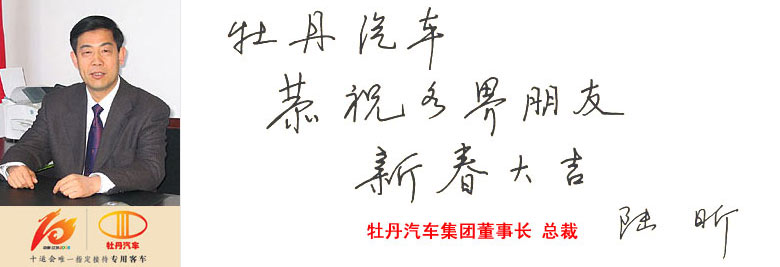 牡丹汽车
恭祝各界朋友
新春大吉
牡丹汽车集团董事长 总裁
陆昕
牡丹汽车
十运会唯一指定接待专用客车